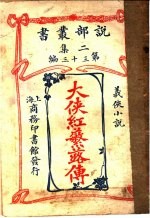 說部叢書
二集
第三十三編
義俠小說
大俠紅蘩蕗傳
上海
商務印書館發行